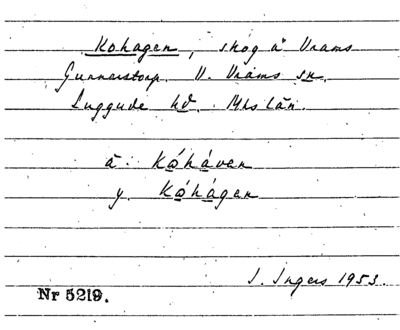 Kohagen, skog å Vrams
Gunnarstorp. V. Vrams sn.
Luggude hd. Mhs län.
ä. Kǿhåven
y. Kǿhågen
I. Ingers 1953.
Nr 5219.